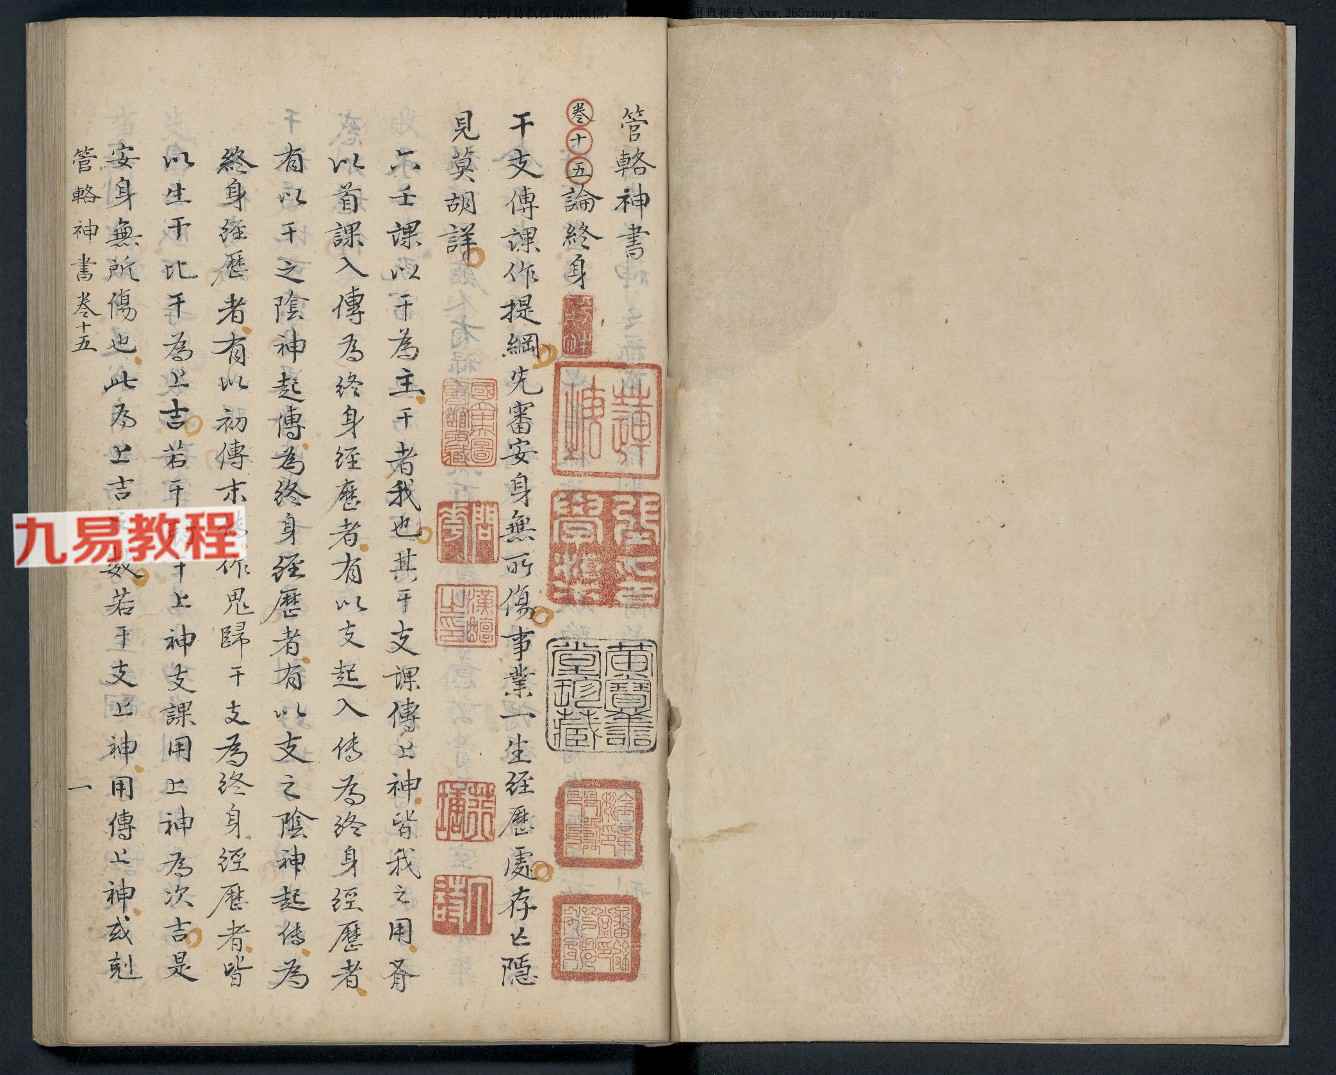 管輅神書
卷十五論終身
干支傳課作提綱先審安身無所傷事業一生經歷處存亡隱
見莫胡詳
六壬課以干為主干者我也其干支課傳上神皆我之用者
以首課入傳為終身經歷者有以支起入傳為終身經歷者
有以干之陰神起傳為終身經歷者有以支之陰神起傳為
終身經歷者有以初傳末 作鬼歸干支為終身經歷者皆
以生干比干為上吉若干 干上神支課用上神為次吉是
安身無所傷也此為上吉 若干支上神用傳上神或剋
管輅神書卷十五
一
九易教程
黃寶善堂珍藏
www.365zhouyi.com